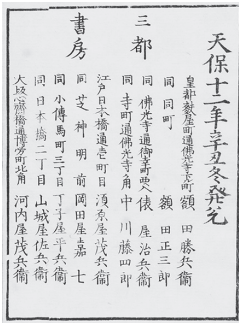 天保十二年辛丑冬發兌
皇都麩屋町通佛光寺 額田藤兵衞
同同町 額田正三郎
同佛光寺通御幸町西入 俵屋治兵衞
同寺町通佛光寺角 中川藤四郎
三都
江戸日本橋通壱町目 須原屋茂兵衞
同芝神明前 岡田屋嘉七
同小傳馬町三丁目 丁子屋平兵衞
書房
同日本橋二丁目 山城屋佐兵衞
大坂心齋橋通博労町北角 河内屋茂兵衞